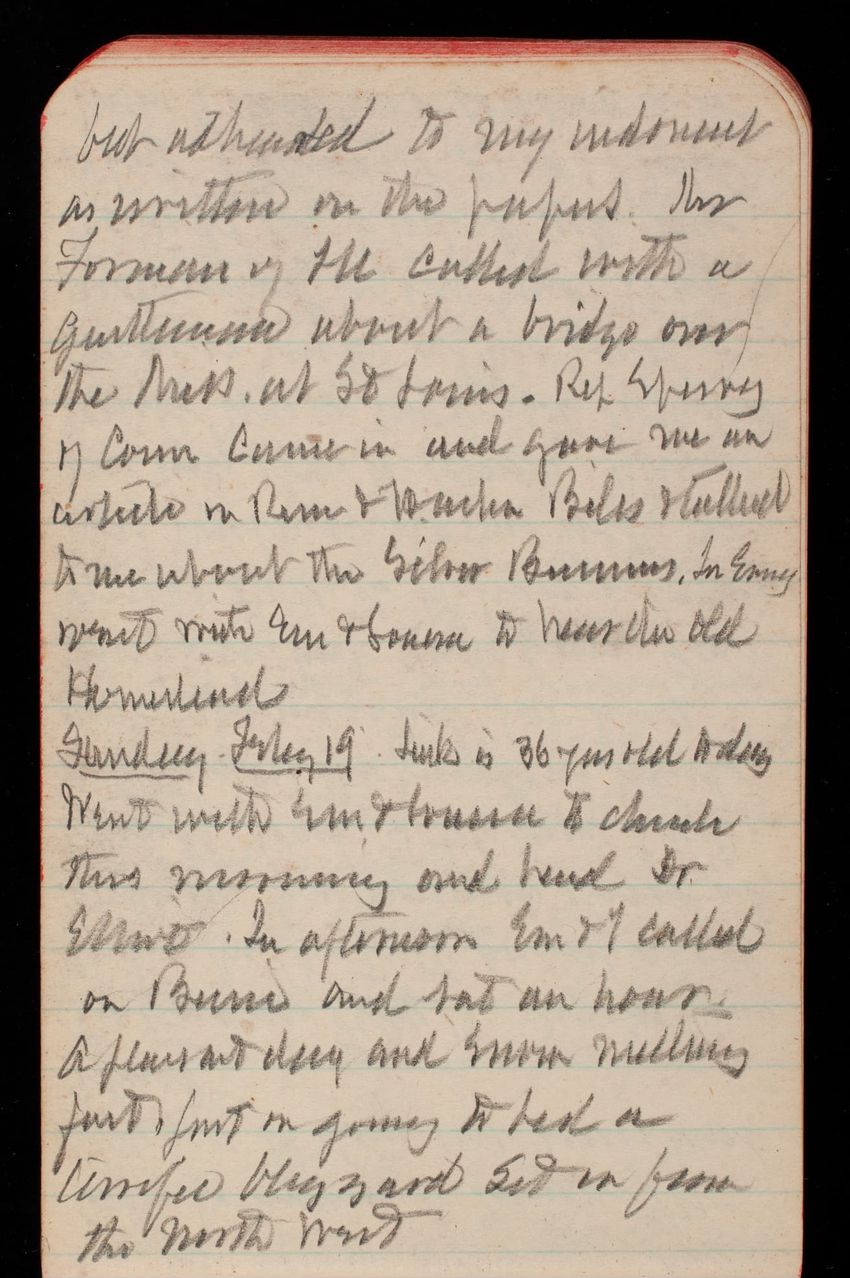 but adhered to my indorsement
as written on the papers. Mr
Forman of Ill called with a
Gentleman about a bridge over
the Miss. at St Louis. Rep Sperry
of Conn came in and gave me an
article on Rum & Bibles & talked
to me about the Silver Business. In Evning
went with Em & Louisa to hear the Old
Homestead
Sunday Feby 19 is 36 years old today
Went with Em & Louisa to church
this morning and heard Dr.
Elliott. In afternoon Em & I called
on and sat an hour.
A pleasant day and snow melting
fast, just on going to bed a
terrific blizzard set in from
the North West